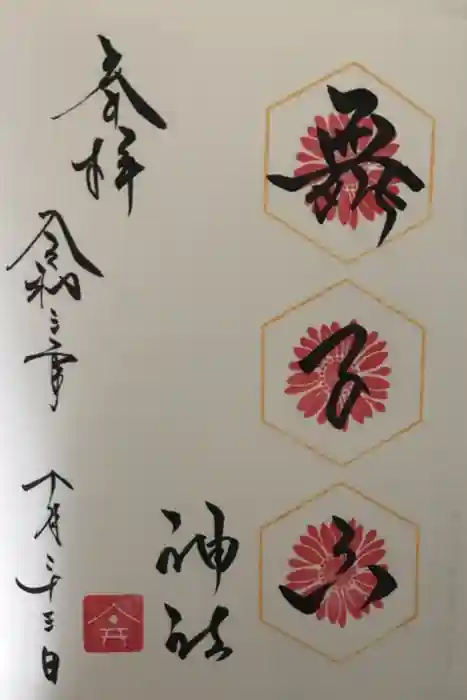 舞子六
神社
奉拝
令和三年 十月二十三日